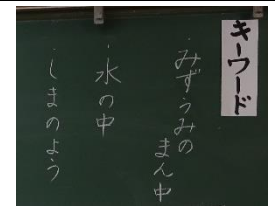 キーワード
・みずうみの
まん中
・水の中
・しまのよう